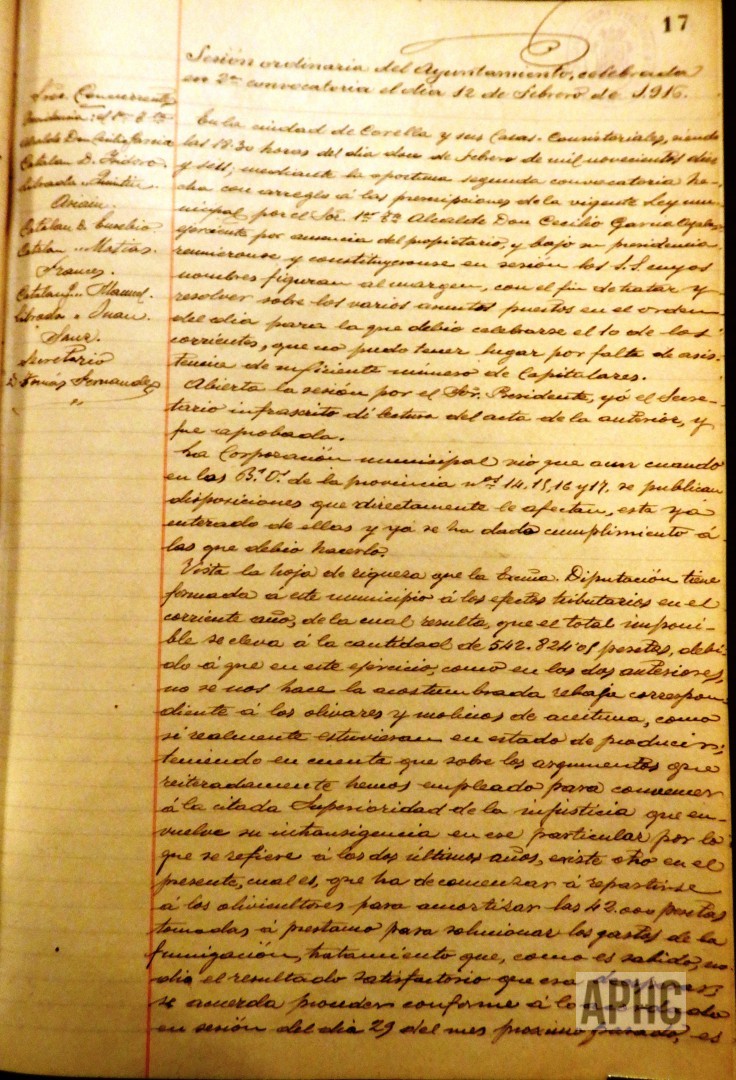 17
Sesión ordinaria del Ayuntamiento, celebrada
en 2ª convocatoria el día 12 de Febrero de 1916.
Sres. Concurrentes
Presidencia: el 1er Tte
Alcalde Don Cecilio García
Catalan D. Isidoro
Librada " Quintín
Arain
Catalan D. Eusebio
Catalan " Matías
Frances.
Catalan " Manuel.
Librada " Juan.
Sanz.
Secretario
D. Tomás Fernandez
"
En la ciudad de Corella y sus Casas Consistoriales, siendo
las 18:30 horas del día doce de febrero de mil novecientos diez
y seis; mediante la oportuna segunda convocatoria he-
cha con arreglo á las prescripciones de la vigente Ley mu-
nicipal por el Sor. 1er Tte Alcalde Don Cecilio García
ejerciente por ausencia del propietario, y bajo su presidencia,
reunieronse y constituyeronse en sesión los S.S. cuyos
nombres figuran al margen, con el fin de tratar y
resolver sobre los varios asuntos puestos en el orden
del dia para la que debió celebrarse el 10 de los
corrientes, que no pudo tener lugar por falta de asis-
tencia de suficiente número de Capitulares.
Abierta la sesión por el Sor. Presidente, yó el Secre-
tario infrascrito dí lectura del acta de la anterior, y
fue aprobada.
La Corporación municipal vio que aun cuando
en los B.s O.s de la provincia nos 14, 15, 16 y 17. se publican
disposiciones que directamente le afectan, esta yá
enterado de ellas y yá se ha dado cumplimiento á
las que debió hacerlo.
Vista la hoja de riqueza que la Excma. Diputación tiene
formada á este municipio á los efectos tributarios en el
corriente año, de la cual resulta, que el total imponi-
ble se eleva á la cantidad de 542.824'05 pesetas, debi-
do á que en este ejercicio, como en los dos anteriores,
no se nos hace la acostumbrada rebaja correspon-
diente á los olivares y molinos de aceituna, como
si realmente estuvieran en estado de producir;
teniendo en cuenta que sobre los argumentos que
reiteradamente hemos empleado para convencer
á la citada Superioridad de la injusticia que en-
vuelve su intransigencia en ese particular por lo
que se refiere á los dos últimos años, existe otro en el
presente, cual es, que ha de comenzar á repartirse
á los olivicultores para amortizar las 42.000 pesetas
tomadas á prestamo para solucionar los gastos de la
fumigación, tratamiento que, como es sabido, no
dió el resultado satisfactorio que era de
se acuerda proceder conforme á lo
en sesión del dia 29 del mes proximo pasado, es
APHC